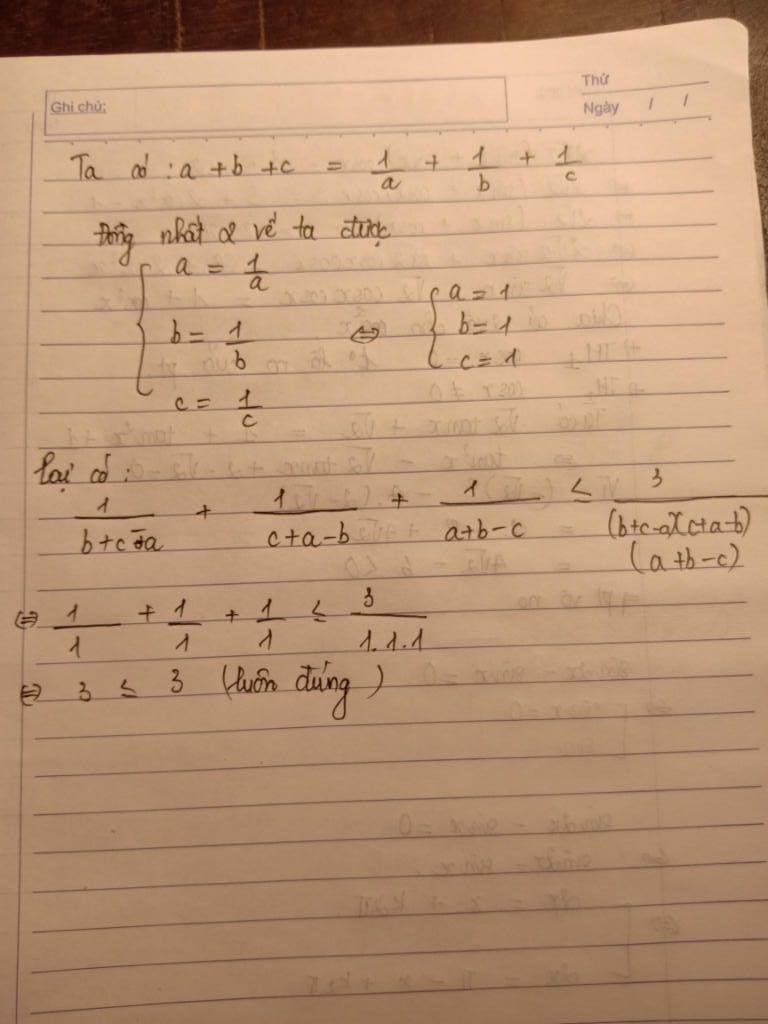 Thứ
Ghi chú:
Ngày / /
Ta có : a + b + c = 1/a + 1/b + 1/c
Đồng nhất 2 vế ta được
{ a = 1/a
b = 1/b
c = 1/c
⇔ { a = 1
b = 1
c = 1
Lại có :
1/(b+c-a) + 1/(c+a-b) + 1/(a+b-c) ≤ 3/((b+c-a)(c+a-b)(a+b-c))
⇔ 1/1 + 1/1 + 1/1 ≤ 3/(1.1.1)
⇔ 3 ≤ 3 (luôn đúng)